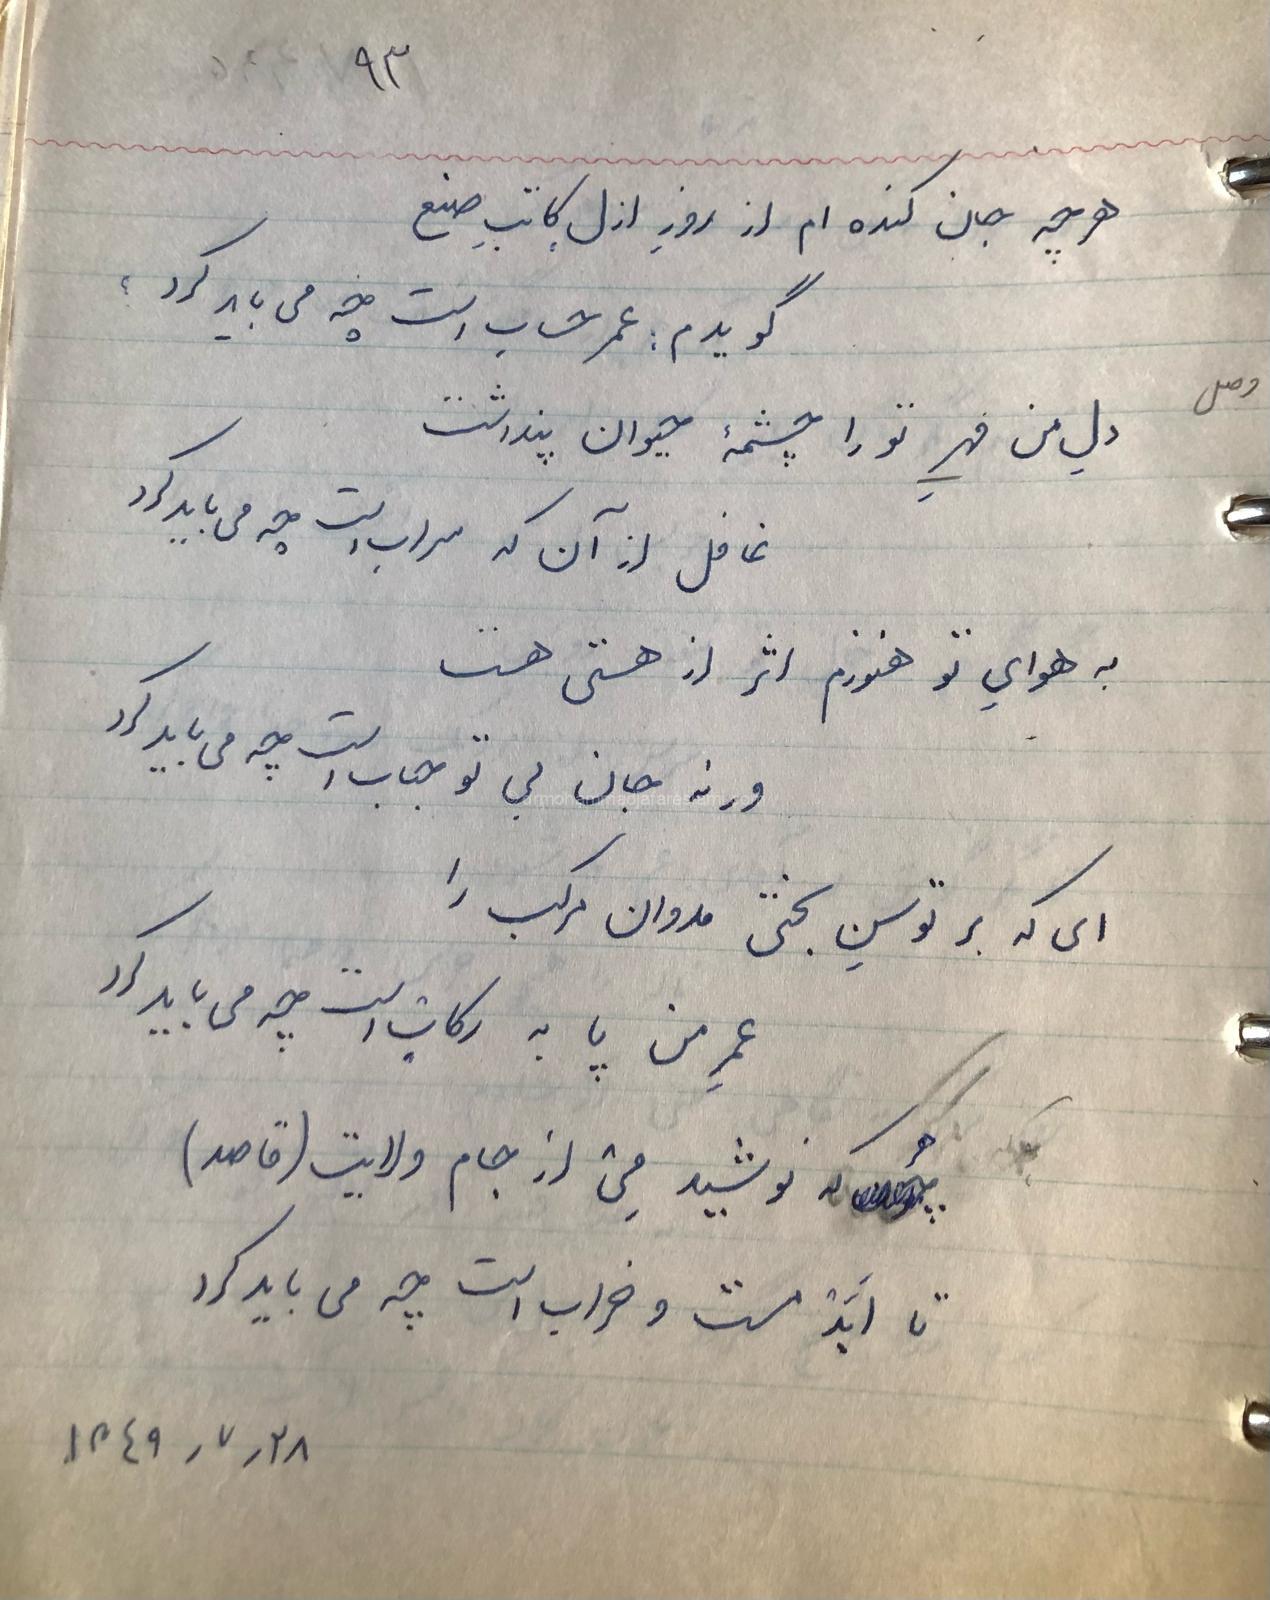 ۹۳
هرچه جان کنده ام از روزِ ازل کاتبِ صنع
گویدم: عمر حساب است چه می باید کرد؟
وصل
دلِ من قهرِ تو را چشمهٔ حیوان پنداشت
غافل از آن که سراب است چه می باید کرد
به هوایِ تو هنوزم اثر از هستی هست
ورنه جان بی تو حباب است چه می باید کرد
ای که بر توسنِ بختی مدوان مرکب را
عمرِ من پا به رکاب است چه می باید کرد
هر که نوشید میْ از جام ولایت (قاصد)
تا اَبَدْ مست و خراب است چه می باید کرد
۲۸ر۷ر۱۳۴۹